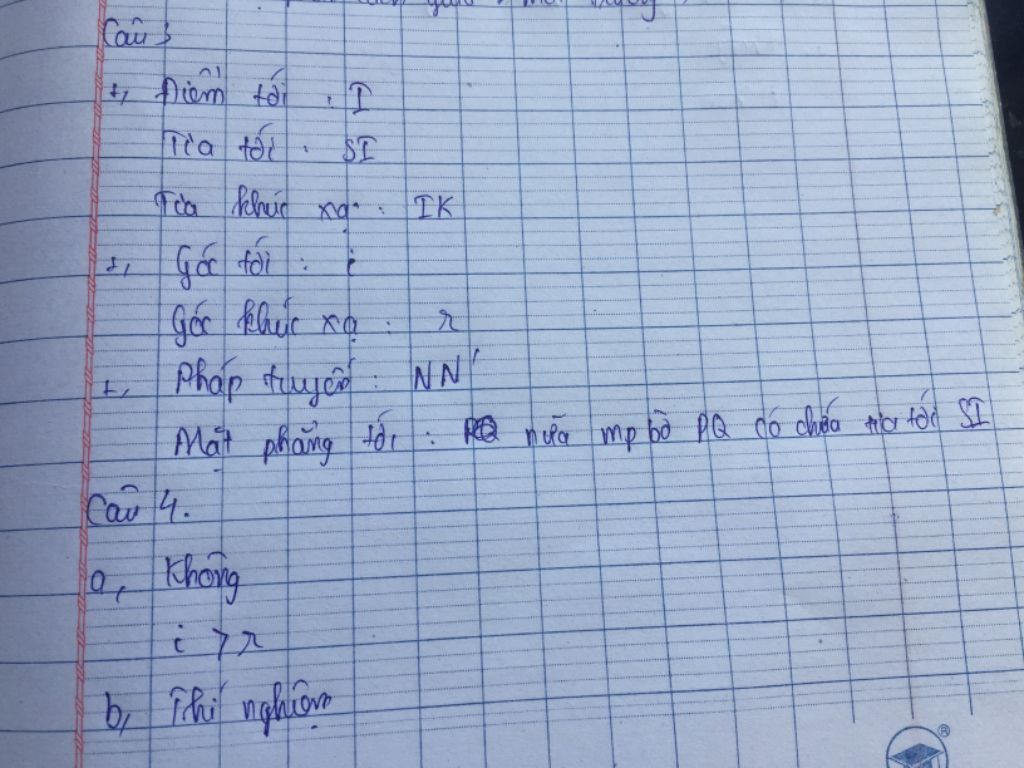 Câu 3
+, Điểm tới : I
Tia tới : SI
Tia khúc xạ : IK
+, Góc tới : i
Góc khúc xạ : r
+, Pháp tuyến : NN'
Mặt phẳng tới : nửa mp bờ PQ có chứa tia tới SI
Câu 4.
a, Không
i > r
b, Thí nghiệm
®